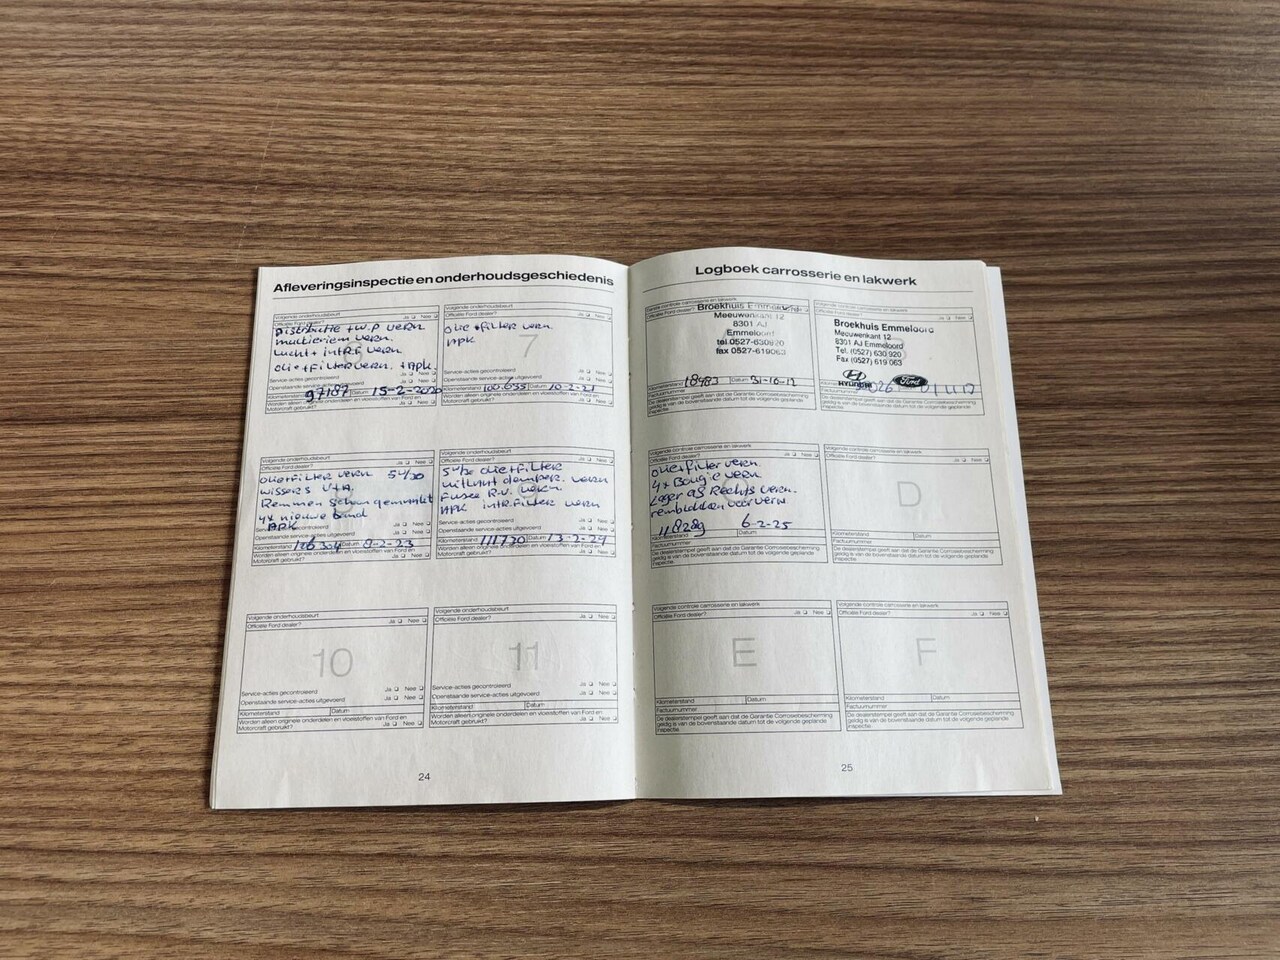 Afleveringsinspectie en onderhoudsgeschiedenis
Volgende onderhoudsbeurt
Officiële Ford dealer? Ja Nee
Distributie + W.P vern
multieriem vern.
Lucht + intR.F vern
olie + Filter vern. + APK.
Service-acties gecontroleerd
Openstaande service-acties uitgevoerd
Kilometerstand 97187 Datum 15-2-2020
Worden alleen originele onderdelen en vloeistoffen van Ford en
Motorcraft gebruikt? Ja Nee
Volgende onderhoudsbeurt
Officiële Ford dealer? Ja Nee
olie + filter vern.
APK
7
Service-acties gecontroleerd Ja Nee
Openstaande service-acties uitgevoerd Ja Nee
Kilometerstand 100.655 Datum 10-2-21
Worden alleen originele onderdelen en vloeistoffen van Ford en
Motorcraft gebruikt? Ja Nee
Volgende onderhoudsbeurt
Officiële Ford dealer? Ja Nee
olie+filter vern 5w/30
wissers V+A.
Remmen schoongemaakt
4x nieuwe band
APK
Openstaande service-acties uitgevoerd Ja Nee
Kilometerstand Datum
Worden alleen originele onderdelen en vloeistoffen van Ford en
Motorcraft gebruikt? Ja Nee
Volgende onderhoudsbeurt
Officiële Ford dealer? Ja Nee
5w/30 olie+Filter
uitlaat demper. vern
Fusee R.V. vern.
APK intR.Filter vern
Service-acties gecontroleerd Ja Nee
Openstaande service-acties uitgevoerd Ja Nee
Kilometerstand 111730 Datum 13-2-24
Worden alleen originele onderdelen en vloeistoffen van Ford en
Motorcraft gebruikt? Ja Nee
Volgende onderhoudsbeurt
Officiële Ford dealer? Ja Nee
10
Service-acties gecontroleerd Ja Nee
Openstaande service-acties uitgevoerd Ja Nee
Kilometerstand Datum
Worden alleen originele onderdelen en vloeistoffen van Ford en
Motorcraft gebruikt? Ja Nee
Volgende onderhoudsbeurt
Officiële Ford dealer? Ja Nee
11
Service-acties gecontroleerd Ja Nee
Openstaande service-acties uitgevoerd Ja Nee
Kilometerstand Datum
Worden alleen originele onderdelen en vloeistoffen van Ford en
Motorcraft gebruikt? Ja Nee
24
Logboek carrosserie en lakwerk
Volgende controle carrosserie en lakwerk
Officiële Ford dealer?
Broekhuis Emmeloord
Meeuwenkant 12
8301 AJ
Emmeloord
tel 0527-630920
fax 0527-619063
Kilometerstand 18483 Datum 31-10-12
Factuurnummer
De dealerstempel geeft aan dat de Garantie Corrosiebescherming
geldig is van de bovenstaande datum tot de volgende geplande
inspectie.
Volgende controle carrosserie en lakwerk
Officiële Ford dealer? Ja Nee
Broekhuis Emmeloord
Meeuwenkant 12
8301 AJ Emmeloord
Tel. (0527) 630 920
Fax (0527) 619 063
HYUNDAI Ford
Factuurnummer
De dealerstempel geeft aan dat de Garantie Corrosiebescherming
geldig is van de bovenstaande datum tot de volgende geplande
inspectie.
Volgende controle carrosserie en lakwerk
Officiële Ford dealer? Ja Nee
olie+filter vern.
4x Bougie vern.
Lager as Rechts vern.
remblokken voor vern.
118289 6-2-25
Kilometerstand Datum
Factuurnummer
De dealerstempel geeft aan dat de Garantie Corrosiebescherming
geldig is van de bovenstaande datum tot de volgende geplande
inspectie.
Volgende controle carrosserie en lakwerk
Officiële Ford dealer? Ja Nee
D
Kilometerstand Datum
Factuurnummer
De dealerstempel geeft aan dat de Garantie Corrosiebescherming
geldig is van de bovenstaande datum tot de volgende geplande
inspectie.
Volgende controle carrosserie en lakwerk
Officiële Ford dealer? Ja Nee
E
Kilometerstand Datum
Factuurnummer
De dealerstempel geeft aan dat de Garantie Corrosiebescherming
geldig is van de bovenstaande datum tot de volgende geplande
inspectie.
Volgende controle carrosserie en lakwerk
Officiële Ford dealer? Ja Nee
F
Kilometerstand Datum
Factuurnummer
De dealerstempel geeft aan dat de Garantie Corrosiebescherming
geldig is van de bovenstaande datum tot de volgende geplande
inspectie.
25